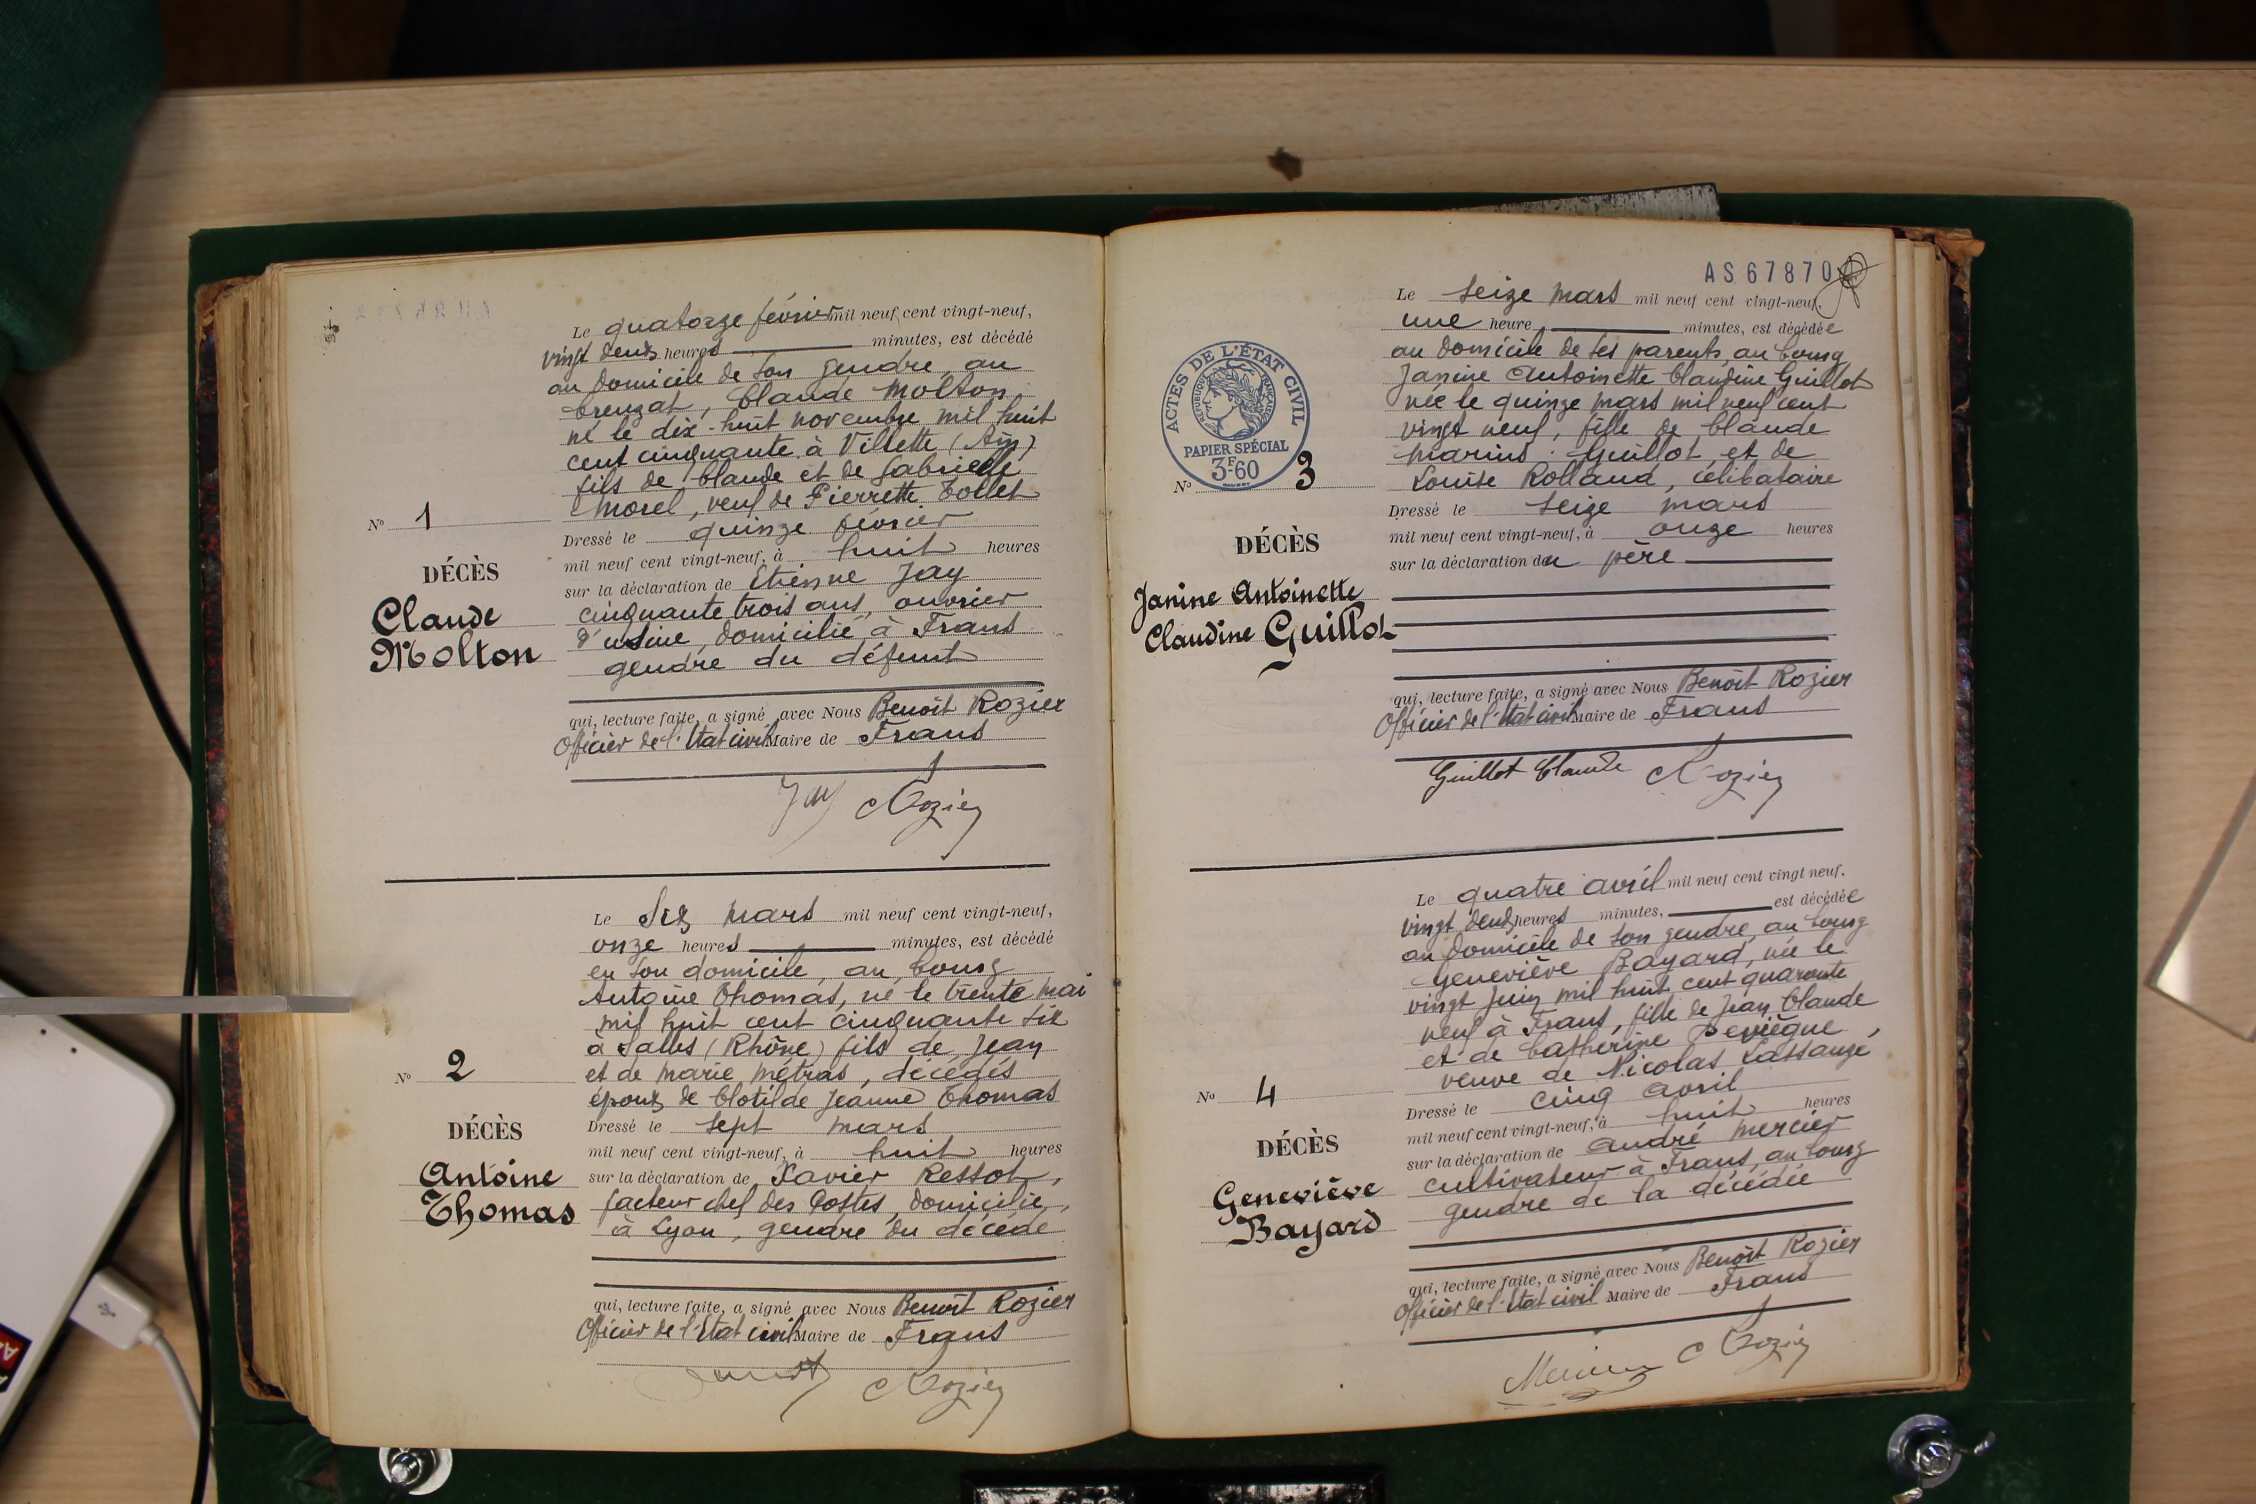 Le quatorze février mil neuf cent vingt-neuf,
vingt deux heures minutes, est décédé
au domicile de son gendre au
Creuzat, Claude Molton
né le dix-huit novembre mil huit
cent cinquante à Villette (Ain)
fils de Claude et de Gabrielle
Morel, veuf de Pierrette Tollet
Nº 1
Dressé le quinze février
mil neuf cent vingt-neuf, à huit heures
DÉCÈS
Claude
Molton
sur la déclaration de Etienne Jay
cinquante trois ans, ouvrier
d'usine, domicilié à Frans
gendre du défunt
qui, lecture faite, a signé avec Nous Benoît Rozier
Officier de l'Etat civil Maire de Frans
Jay Rozier
Le six mars mil neuf cent vingt-neuf,
onze heures minutes, est décédé
en son domicile, au bourg
Antoine Thomas, né le trente mai
mil huit cent cinquante six
à Salles (Rhône) fils de Jean
et de Marie Métras, décédés
époux de Clotilde Jeanne Thomas
Nº 2
Dressé le sept mars
mil neuf cent vingt-neuf, à huit heures
DÉCÈS
Antoine
Thomas
sur la déclaration de Xavier Ressot,
facteur chef des Postes, domicilié,
à Lyon, gendre du décédé
qui, lecture faite, a signé avec Nous Benoît Rozier
Officier de l'Etat civil Maire de Frans
Rozier
AS67870
ACTES DE L'ÉTAT CIVIL
RÉPUBLIQUE FRANÇAISE
PAPIER SPÉCIAL
3F60
Le seize mars mil neuf cent vingt-neuf,
une heure minutes, est décédée
au domicile de ses parents, au bourg
Janine Antoinette Claudine Guillot
née le quinze mars mil neuf cent
vingt neuf, fille de Claude
Marius Guillot et de
Louise Rolland, célibataire
Nº 3
Dressé le seize mars
mil neuf cent vingt-neuf, à onze heures
DÉCÈS
Janine Antoinette
Claudine Guillot
sur la déclaration du père
qui, lecture faite, a signé avec Nous Benoît Rozier
Officier de l'Etat civil Maire de Frans
Guillot Claude Rozier
Le quatre avril mil neuf cent vingt neuf,
vingt deux heures minutes, est décédée
au domicile de son gendre, au bourg
Geneviève Bayard, née le
vingt juin mil huit cent quarante
neuf à Frans, fille de Jean Claude
et de Catherine
veuve de Nicolas Lassauge
Nº 4
Dressé le cinq avril
mil neuf cent vingt-neuf, à huit heures
DÉCÈS
Geneviève
Bayard
sur la déclaration de André Mercier
cultivateur à Frans, au bourg
gendre de la décédée
qui, lecture faite, a signé avec Nous Benoît Rozier
Officier de l'Etat civil Maire de Frans
Mercier Rozier